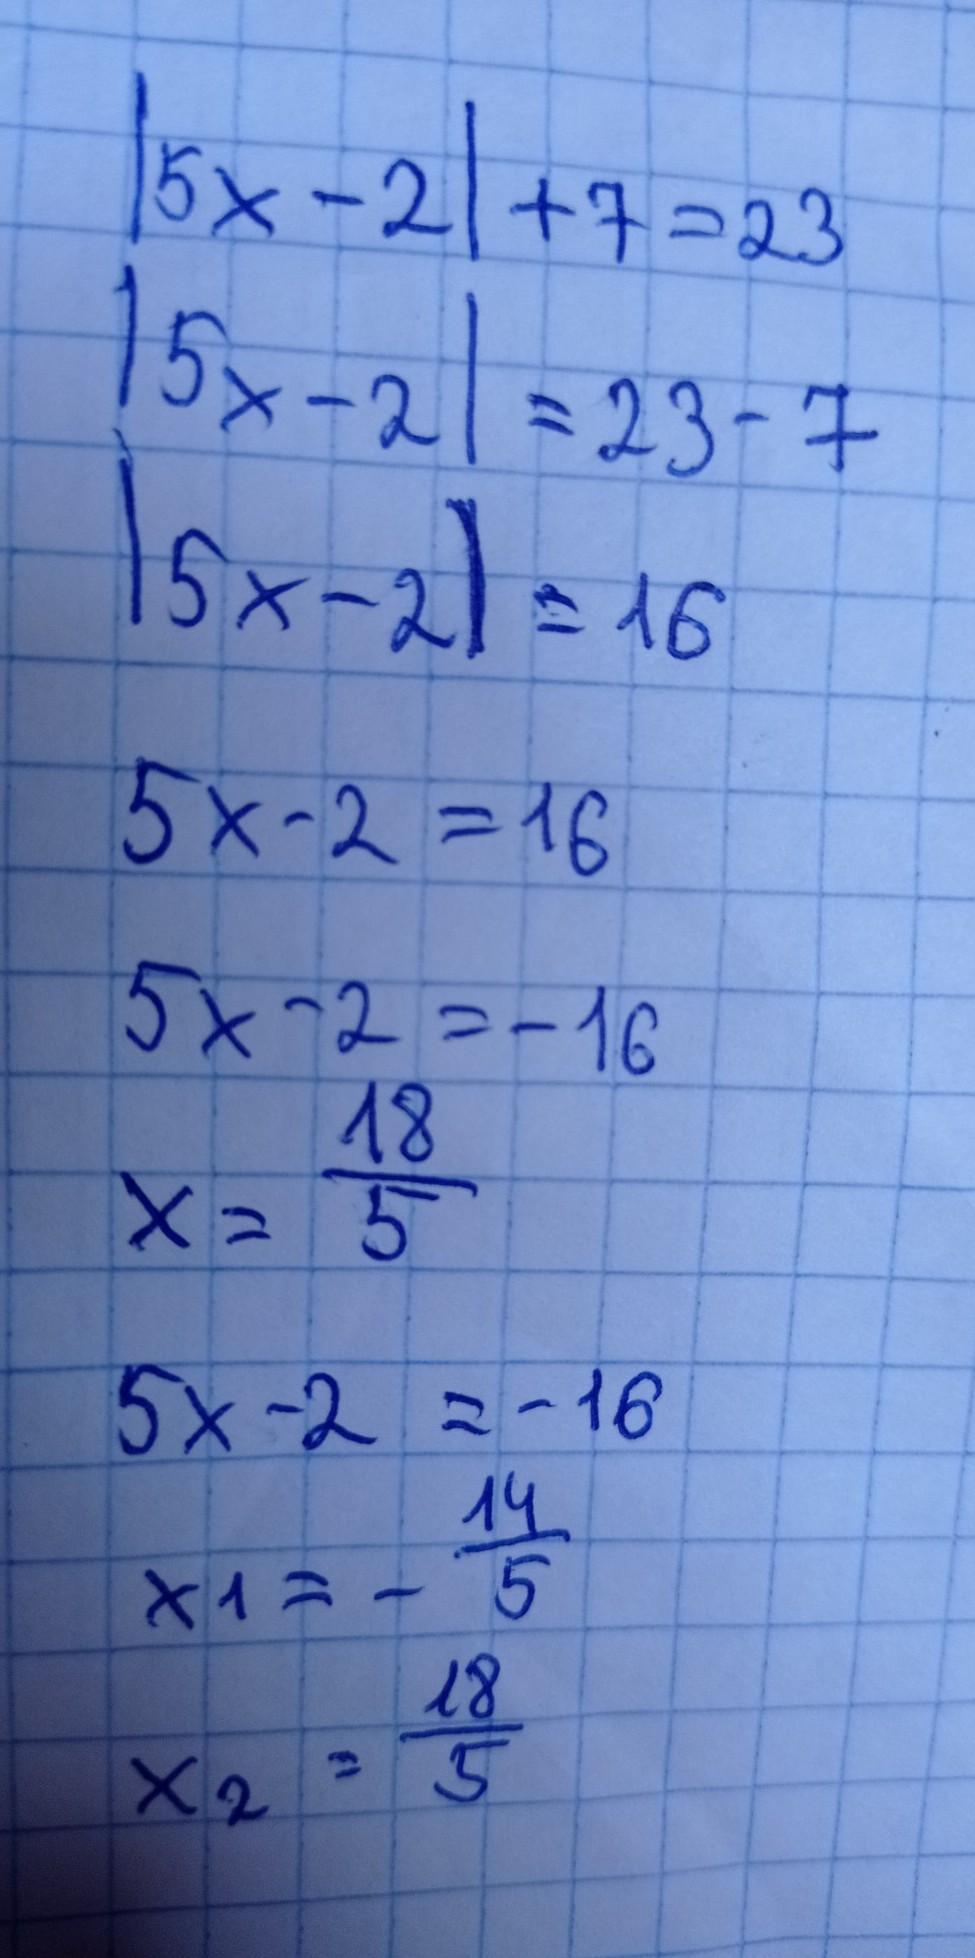 |5x-2|+7=23
|5x-2|=23-7
|5x-2|=16
5x-2=16
5x-2=-16
x=18/5
5x-2=-16
x1=-14/5
x2=18/5